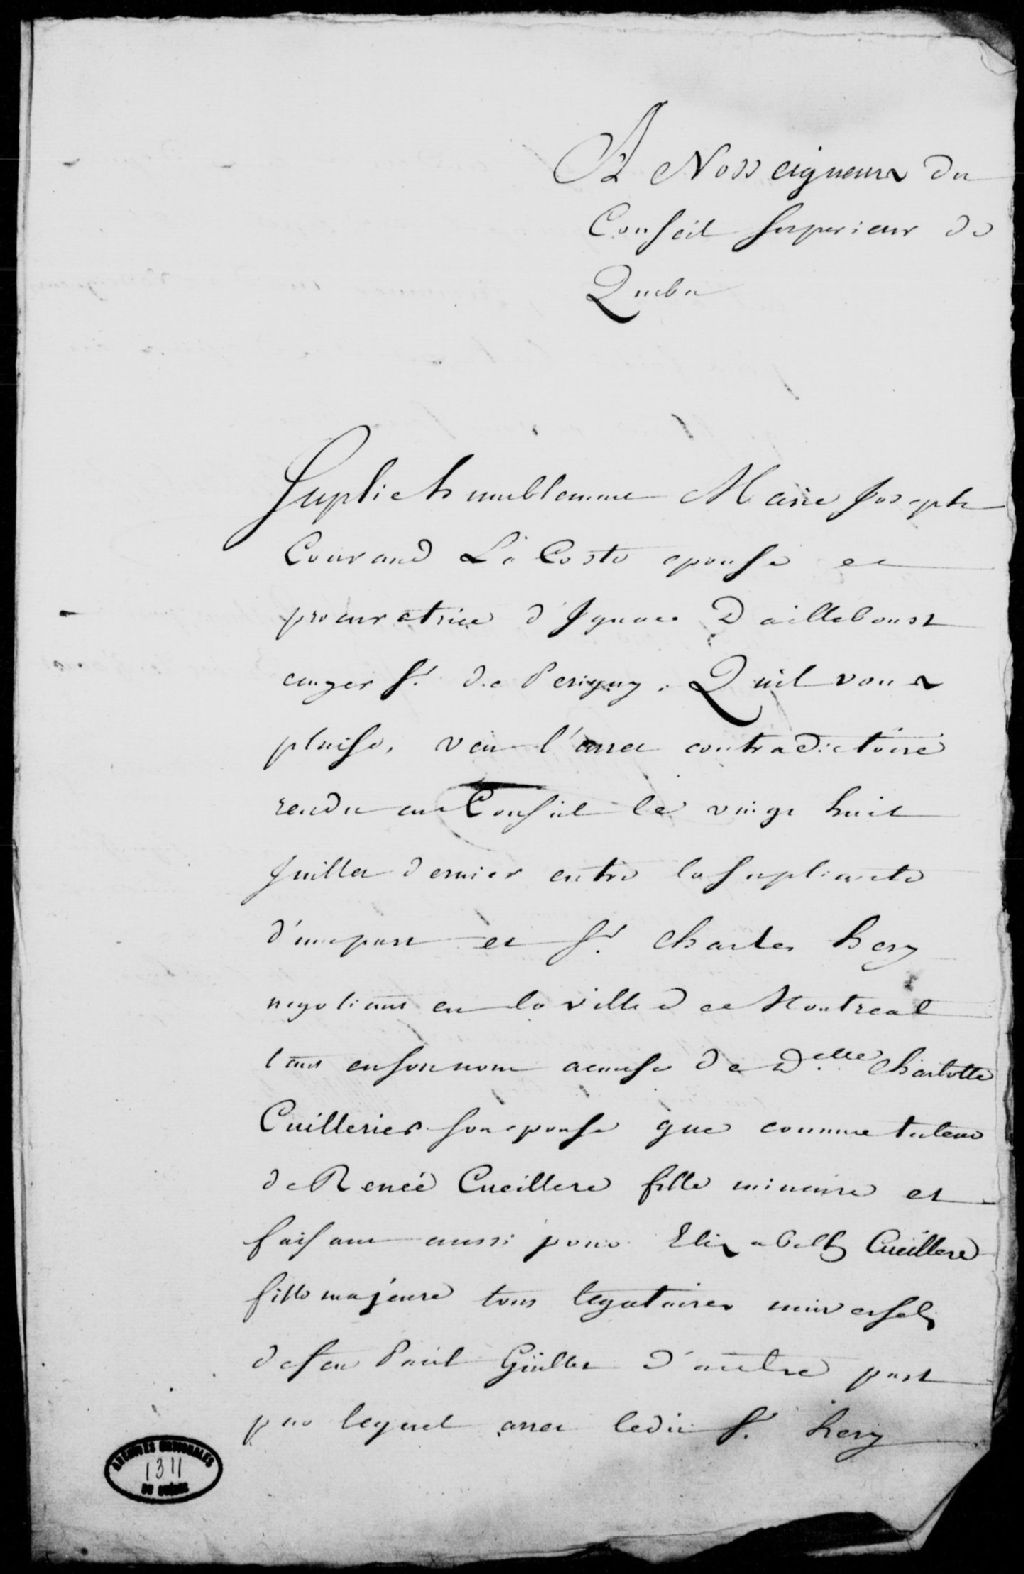 A Nosseigneurs du
Conseil superieur de
Quebec
Suplie humblement Marie Joseph
Courand La Coste epouse et
procuratrice d'Ignace Dailleboust
ecuyer Sr. de Perigny. Quil vous
plaise, veu l'arret contradictoire
rendu au Conseil le vingt huit
Juillet dernier entre la supliante
d'une part et Sr. Charles hery
negotiant en la ville de Montreal
tant en son nom acause de Delle Charlotte
Cuilleries son epouse que comme tuteur
de Reneé Cueillere fille mineure et
faisant aussi pour Elizabeth Cueillere
fille majeure tous legataires universels
de feu Paul Guillet d'autre part
par lequel arret ledit Sr. hery
ARCHIVES NATIONALES
1311
DU QUEBEC